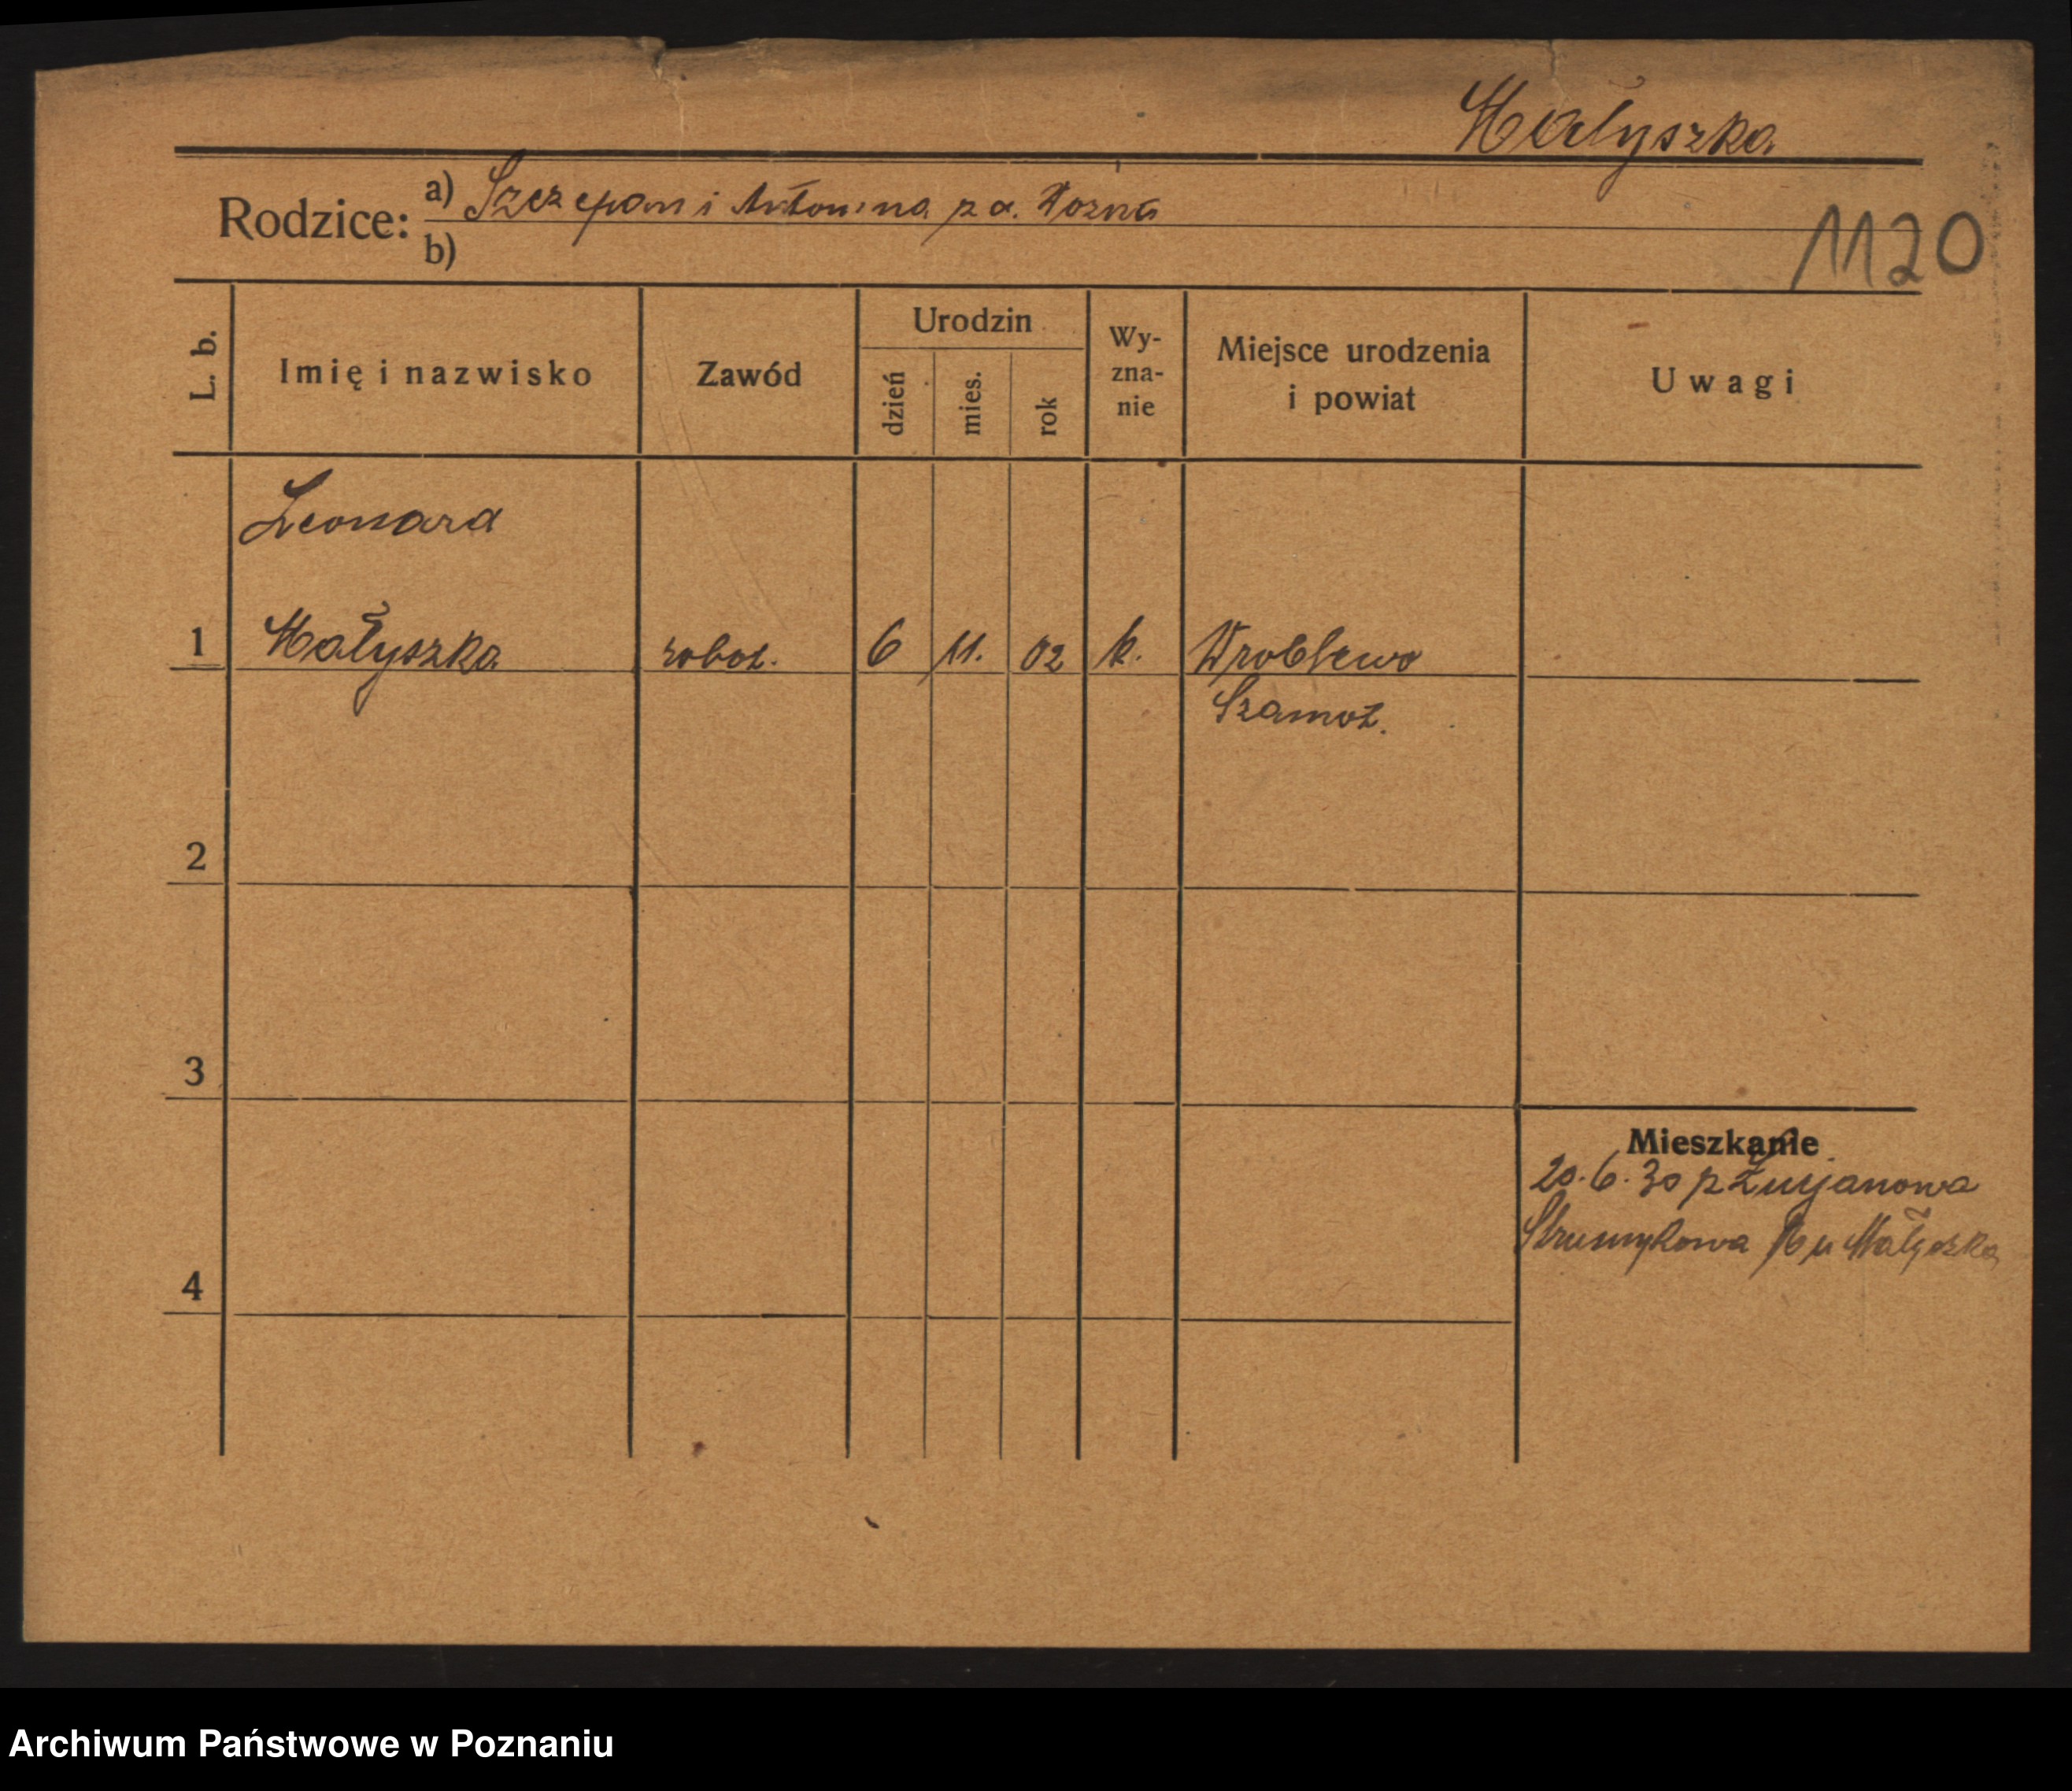 Małyszka
Rodzice: a) Szczepan i Antonina z d.
b)
1120
L. b.
Imię i nazwisko
Zawód
Urodzin
dzień
mies.
rok
Wy-
zna-
nie
Miejsce urodzenia
i powiat
Uwagi
Leonard
1 Małyszka robot. 6 11. 02 k. Wroblewo
Szamot.
2
3
4
Mieszkanie
20.6.30 p
Strumykowa u Małyszka
Archiwum Państwowe w Poznaniu